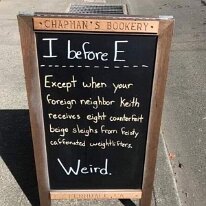 CHAPMAN'S BOOKERY
I before E
Except when your
foreign neighbor Keith
receives eight counterfeit
beige sleighs from feisty
caffeinated weightlifters.
Weird.